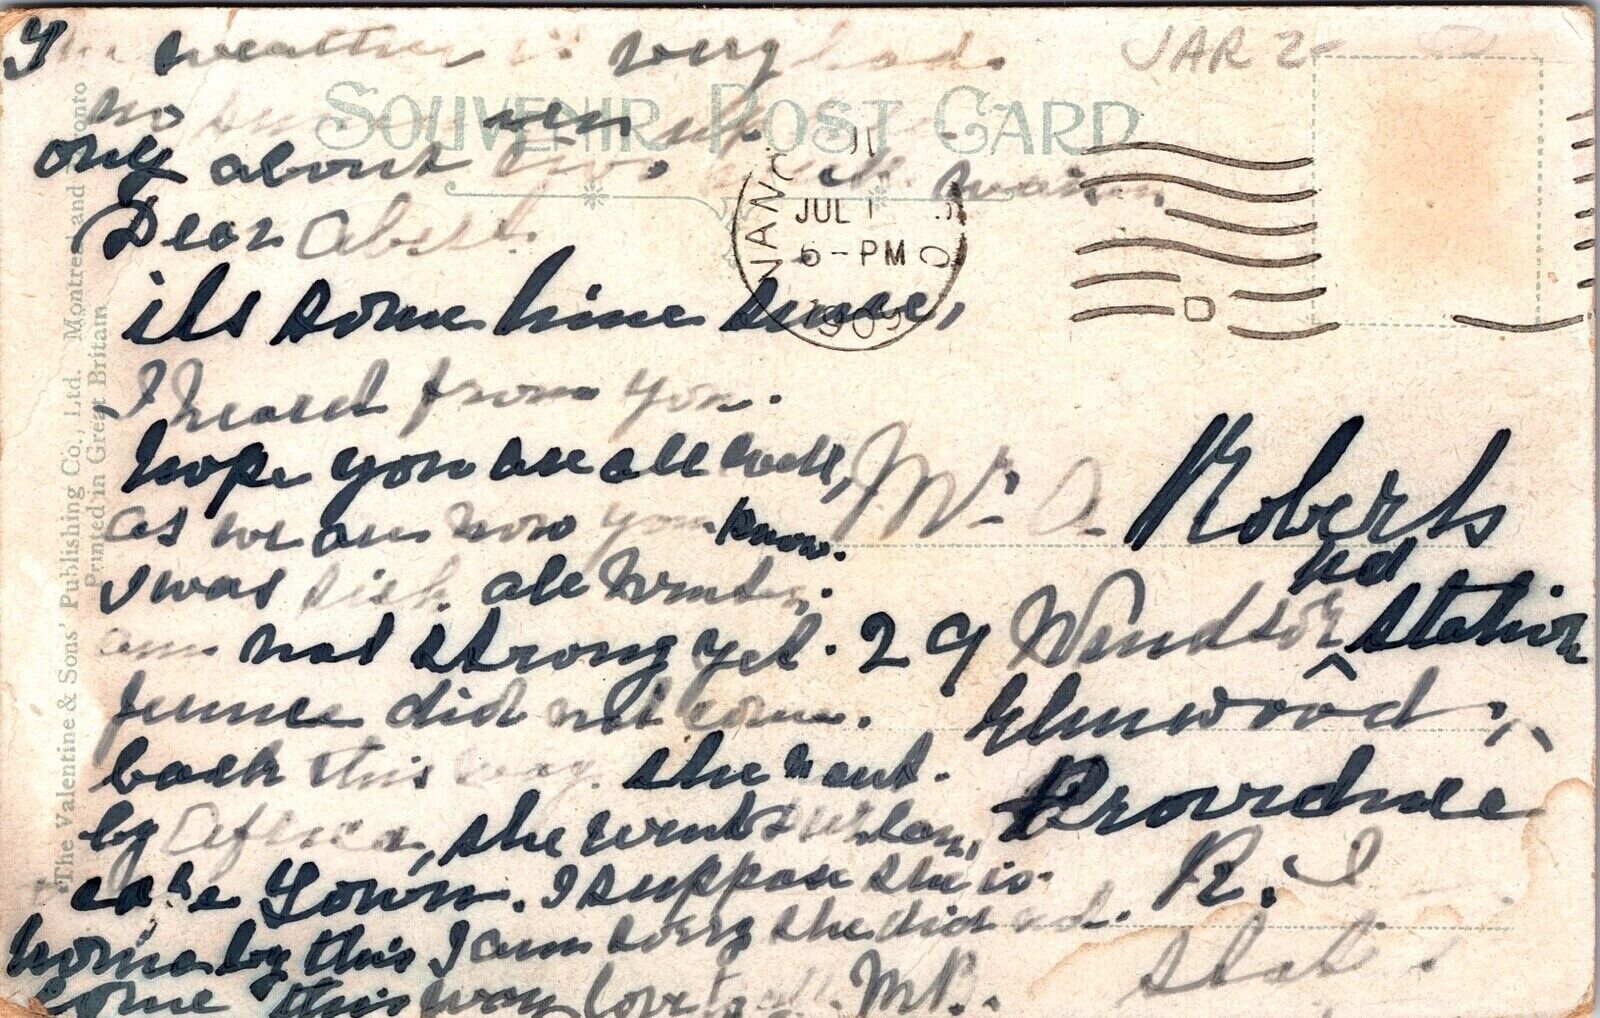 The weather is very bad.
no
only about two
SOUVENIR POST CARD
JAR 2-
Dear Albert.
its some time since,
I heard from you.
hope you are all well,
as we are now you know.
I was sick all Winter.
am not strong yet.
did not come.
back this way. she went.
by Africa, she went
cape Town. I suppose she is
home by this I am sorry she did not.
come this way love to all. M B.
NANO
JUL 1
5-PM
190
D
Mr. A. Roberts
29 Windsor Rd Station
Elmwood,
Providence
R. I
State
The Valentine & Sons' Publishing Co., Ltd. Montreal and Toronto
Printed in Great Britain